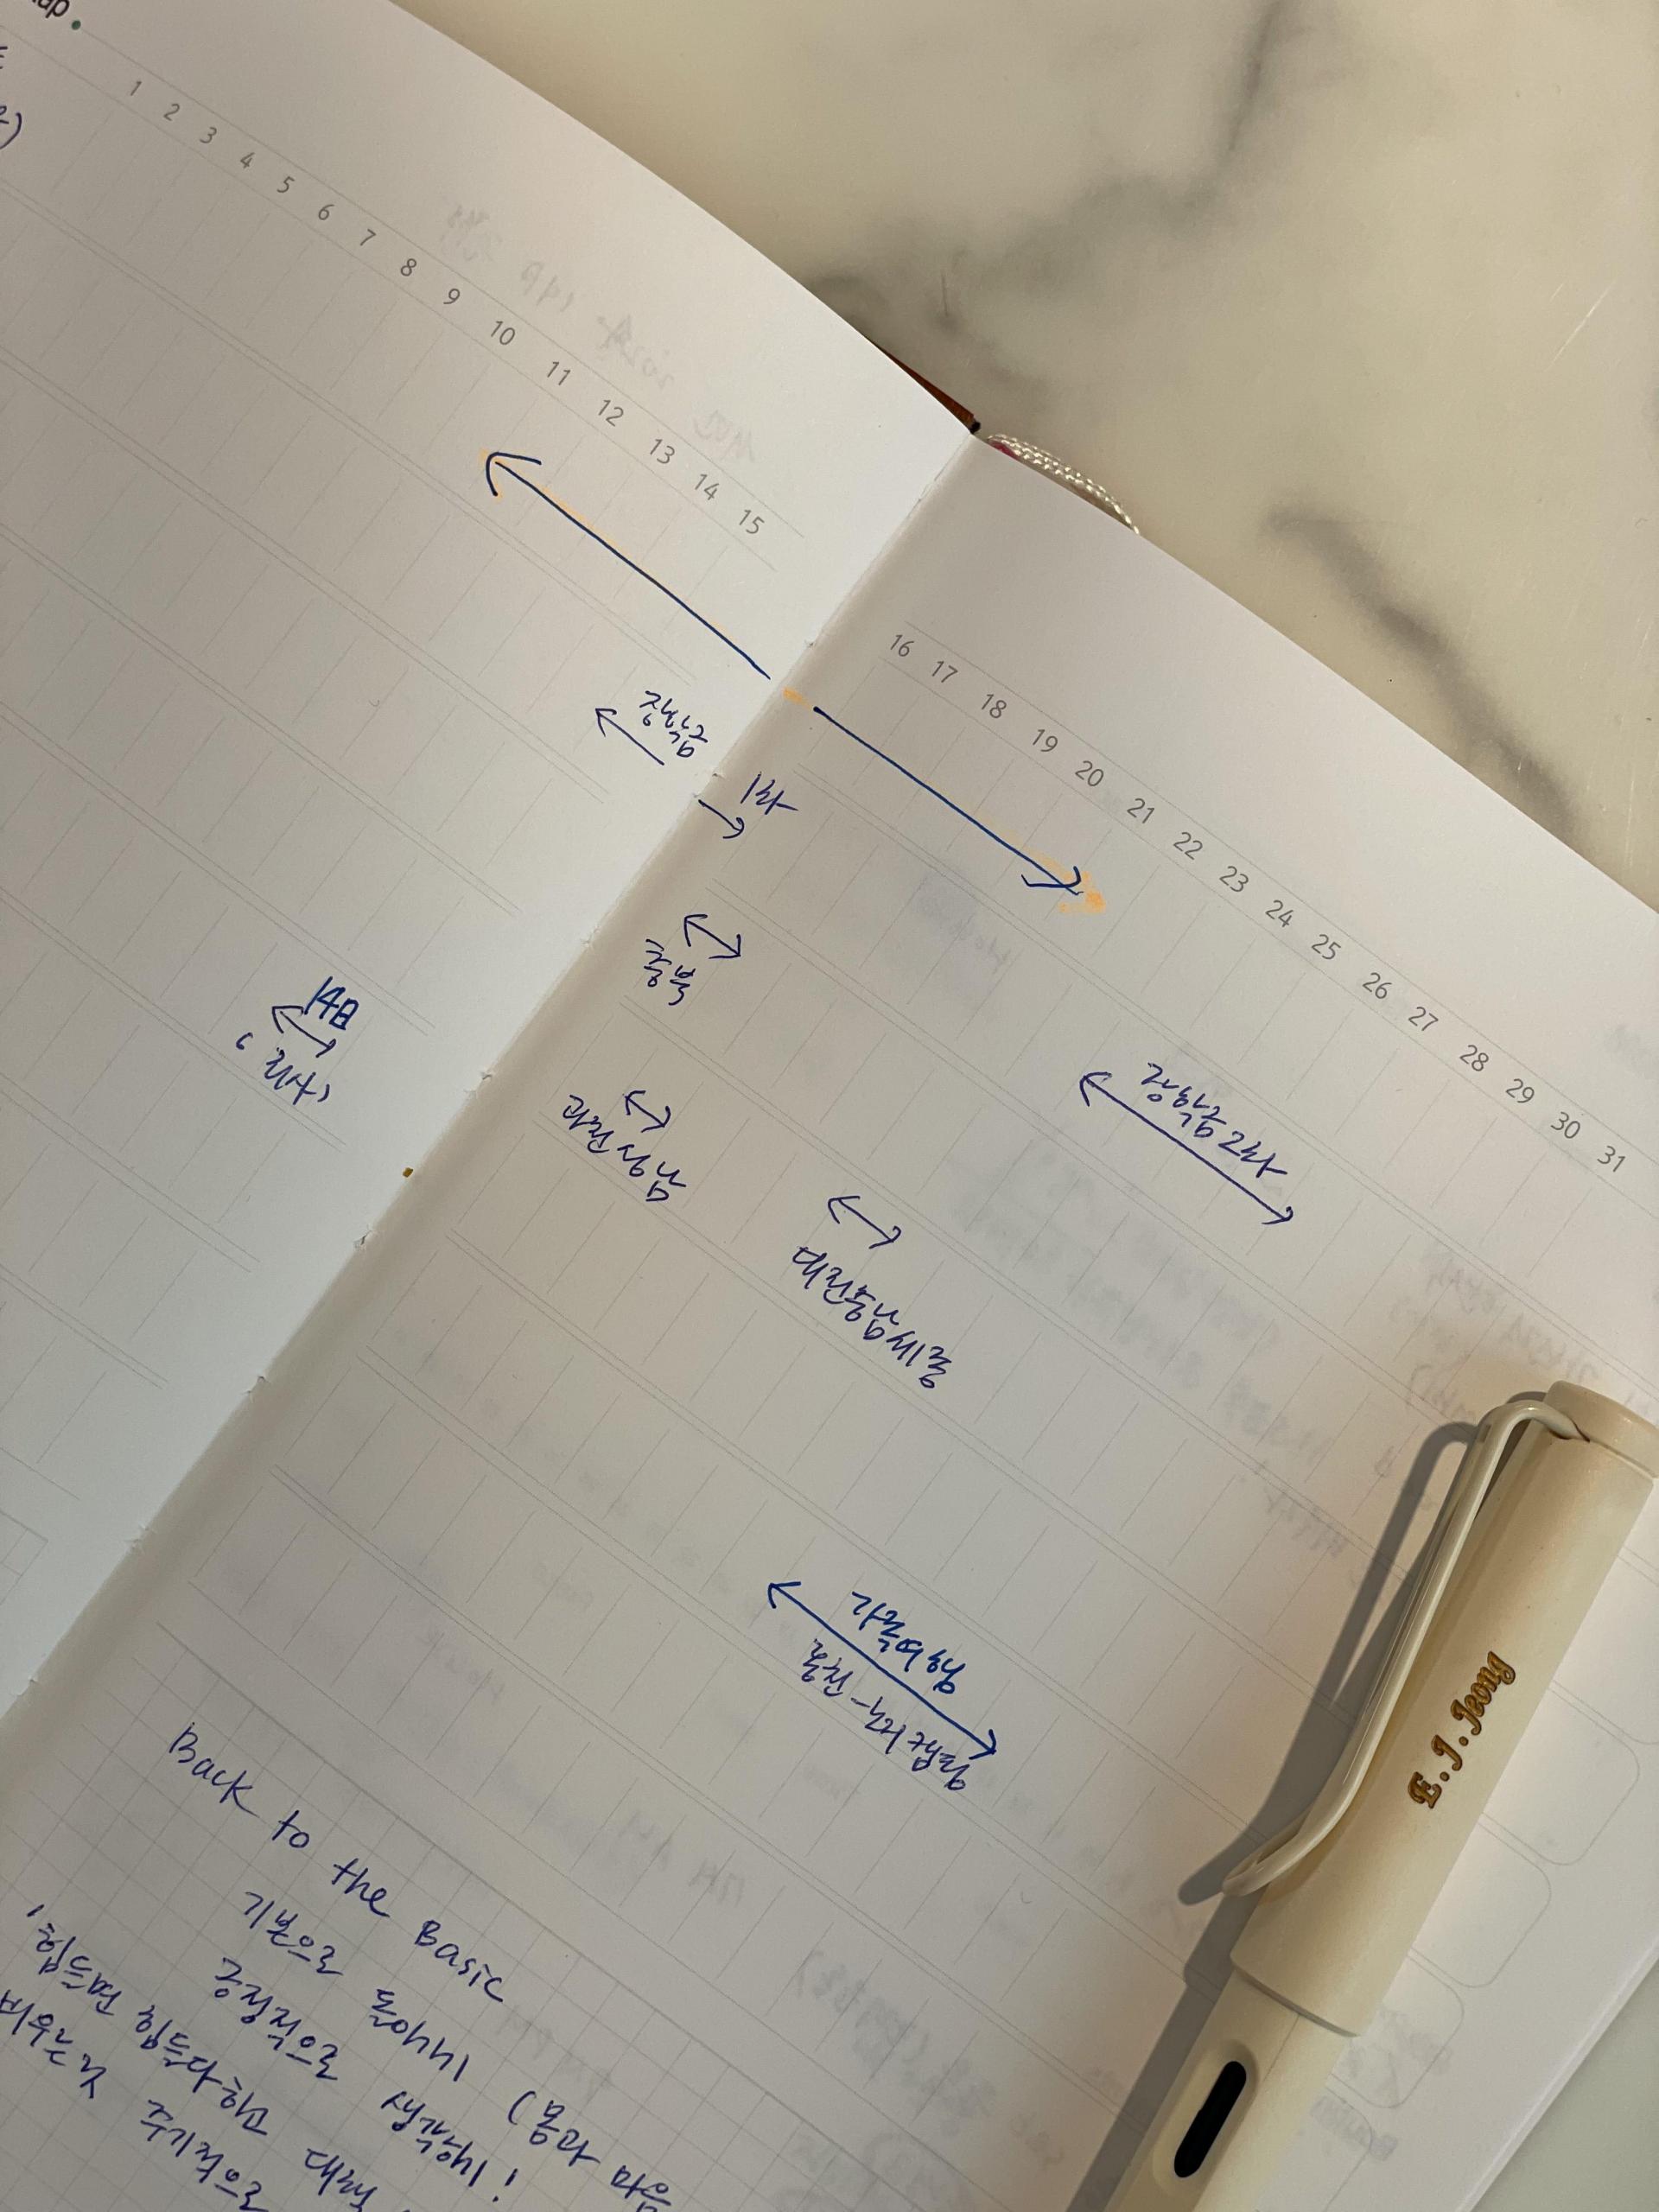 1 2 3 4 5 6 7 8 9 10 11 12 13 14 15
16 17 18 19 20 21 22 23 24 25 26 27 28 29 30 31
장학금
1차
충북
14日
과천 성남
장학금 2차
대전충남세종
가족여행
Back to the Basic
기본으로 돌아가기
(몸과 마음
긍정적으로 생각하기!
힘들면 힘들다하고
비우는 것 주기적으로
E.J.Jeong